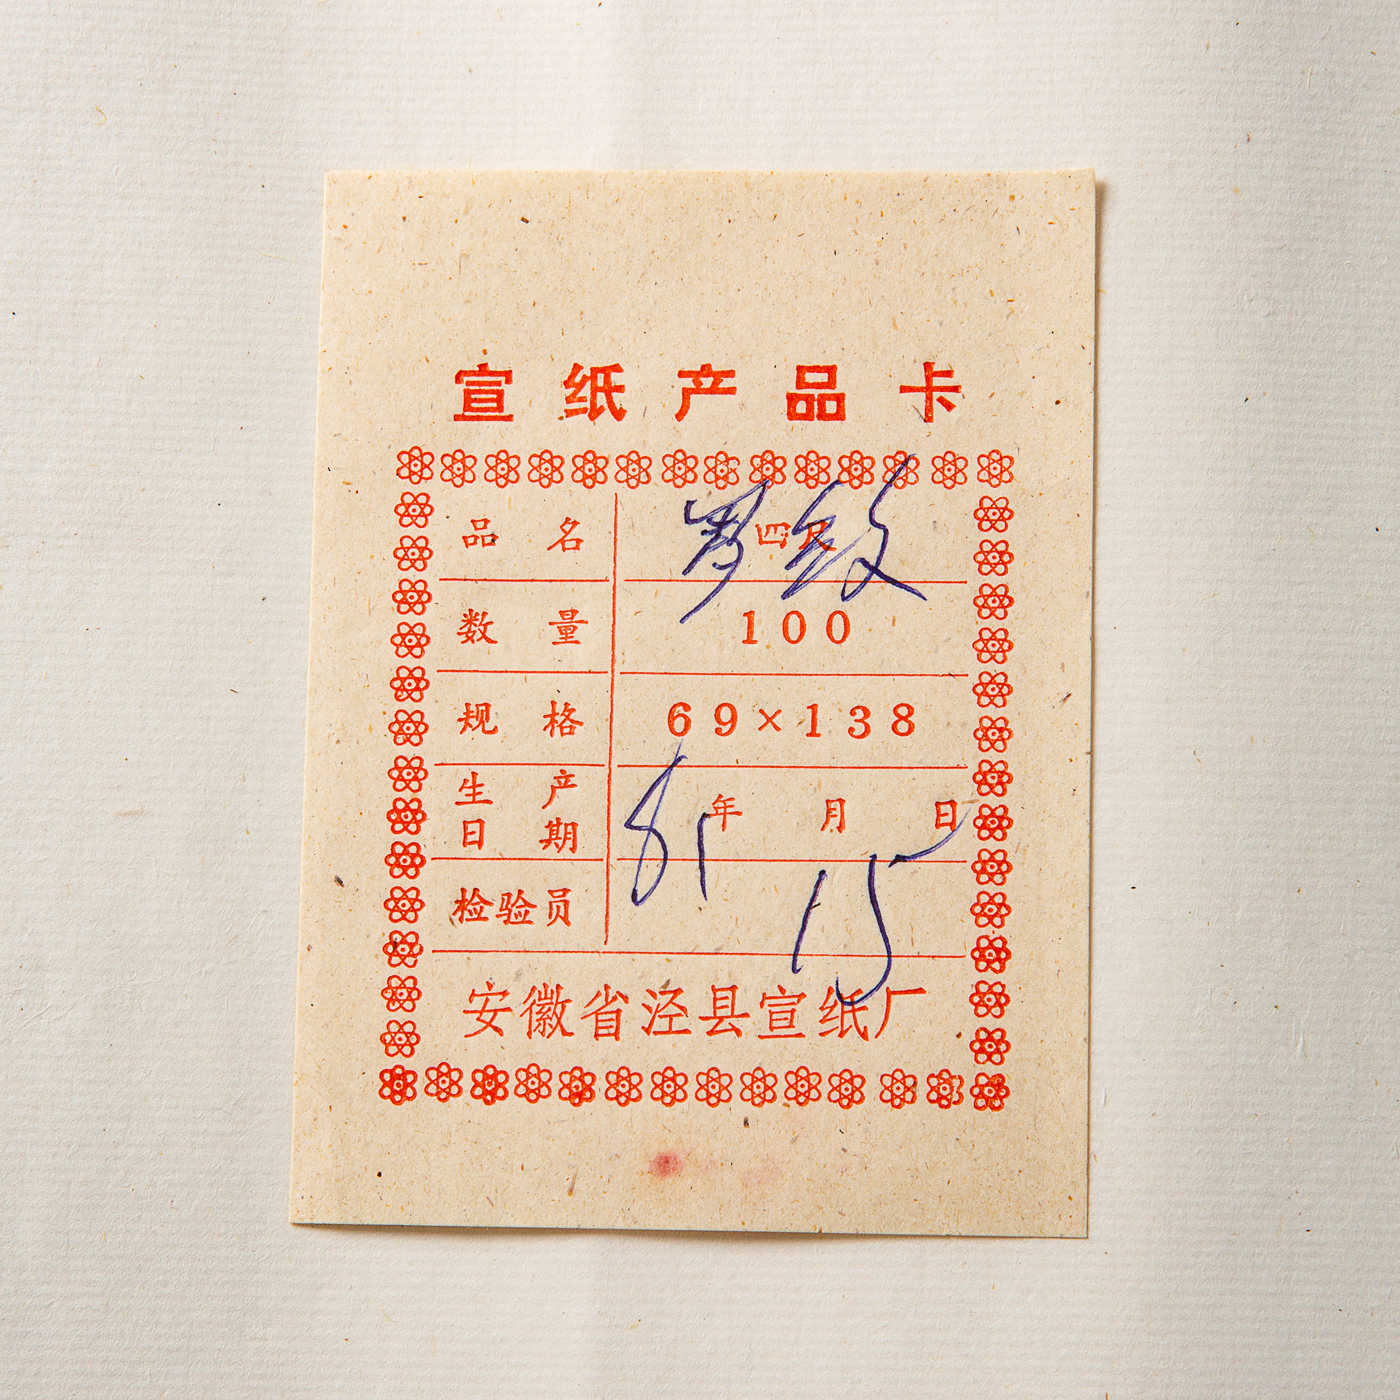 宣纸产品卡
品名 四尺
数量 100
规格 69×138
生产日期 81年 月 日
15
检验员
安徽省泾县宣纸厂